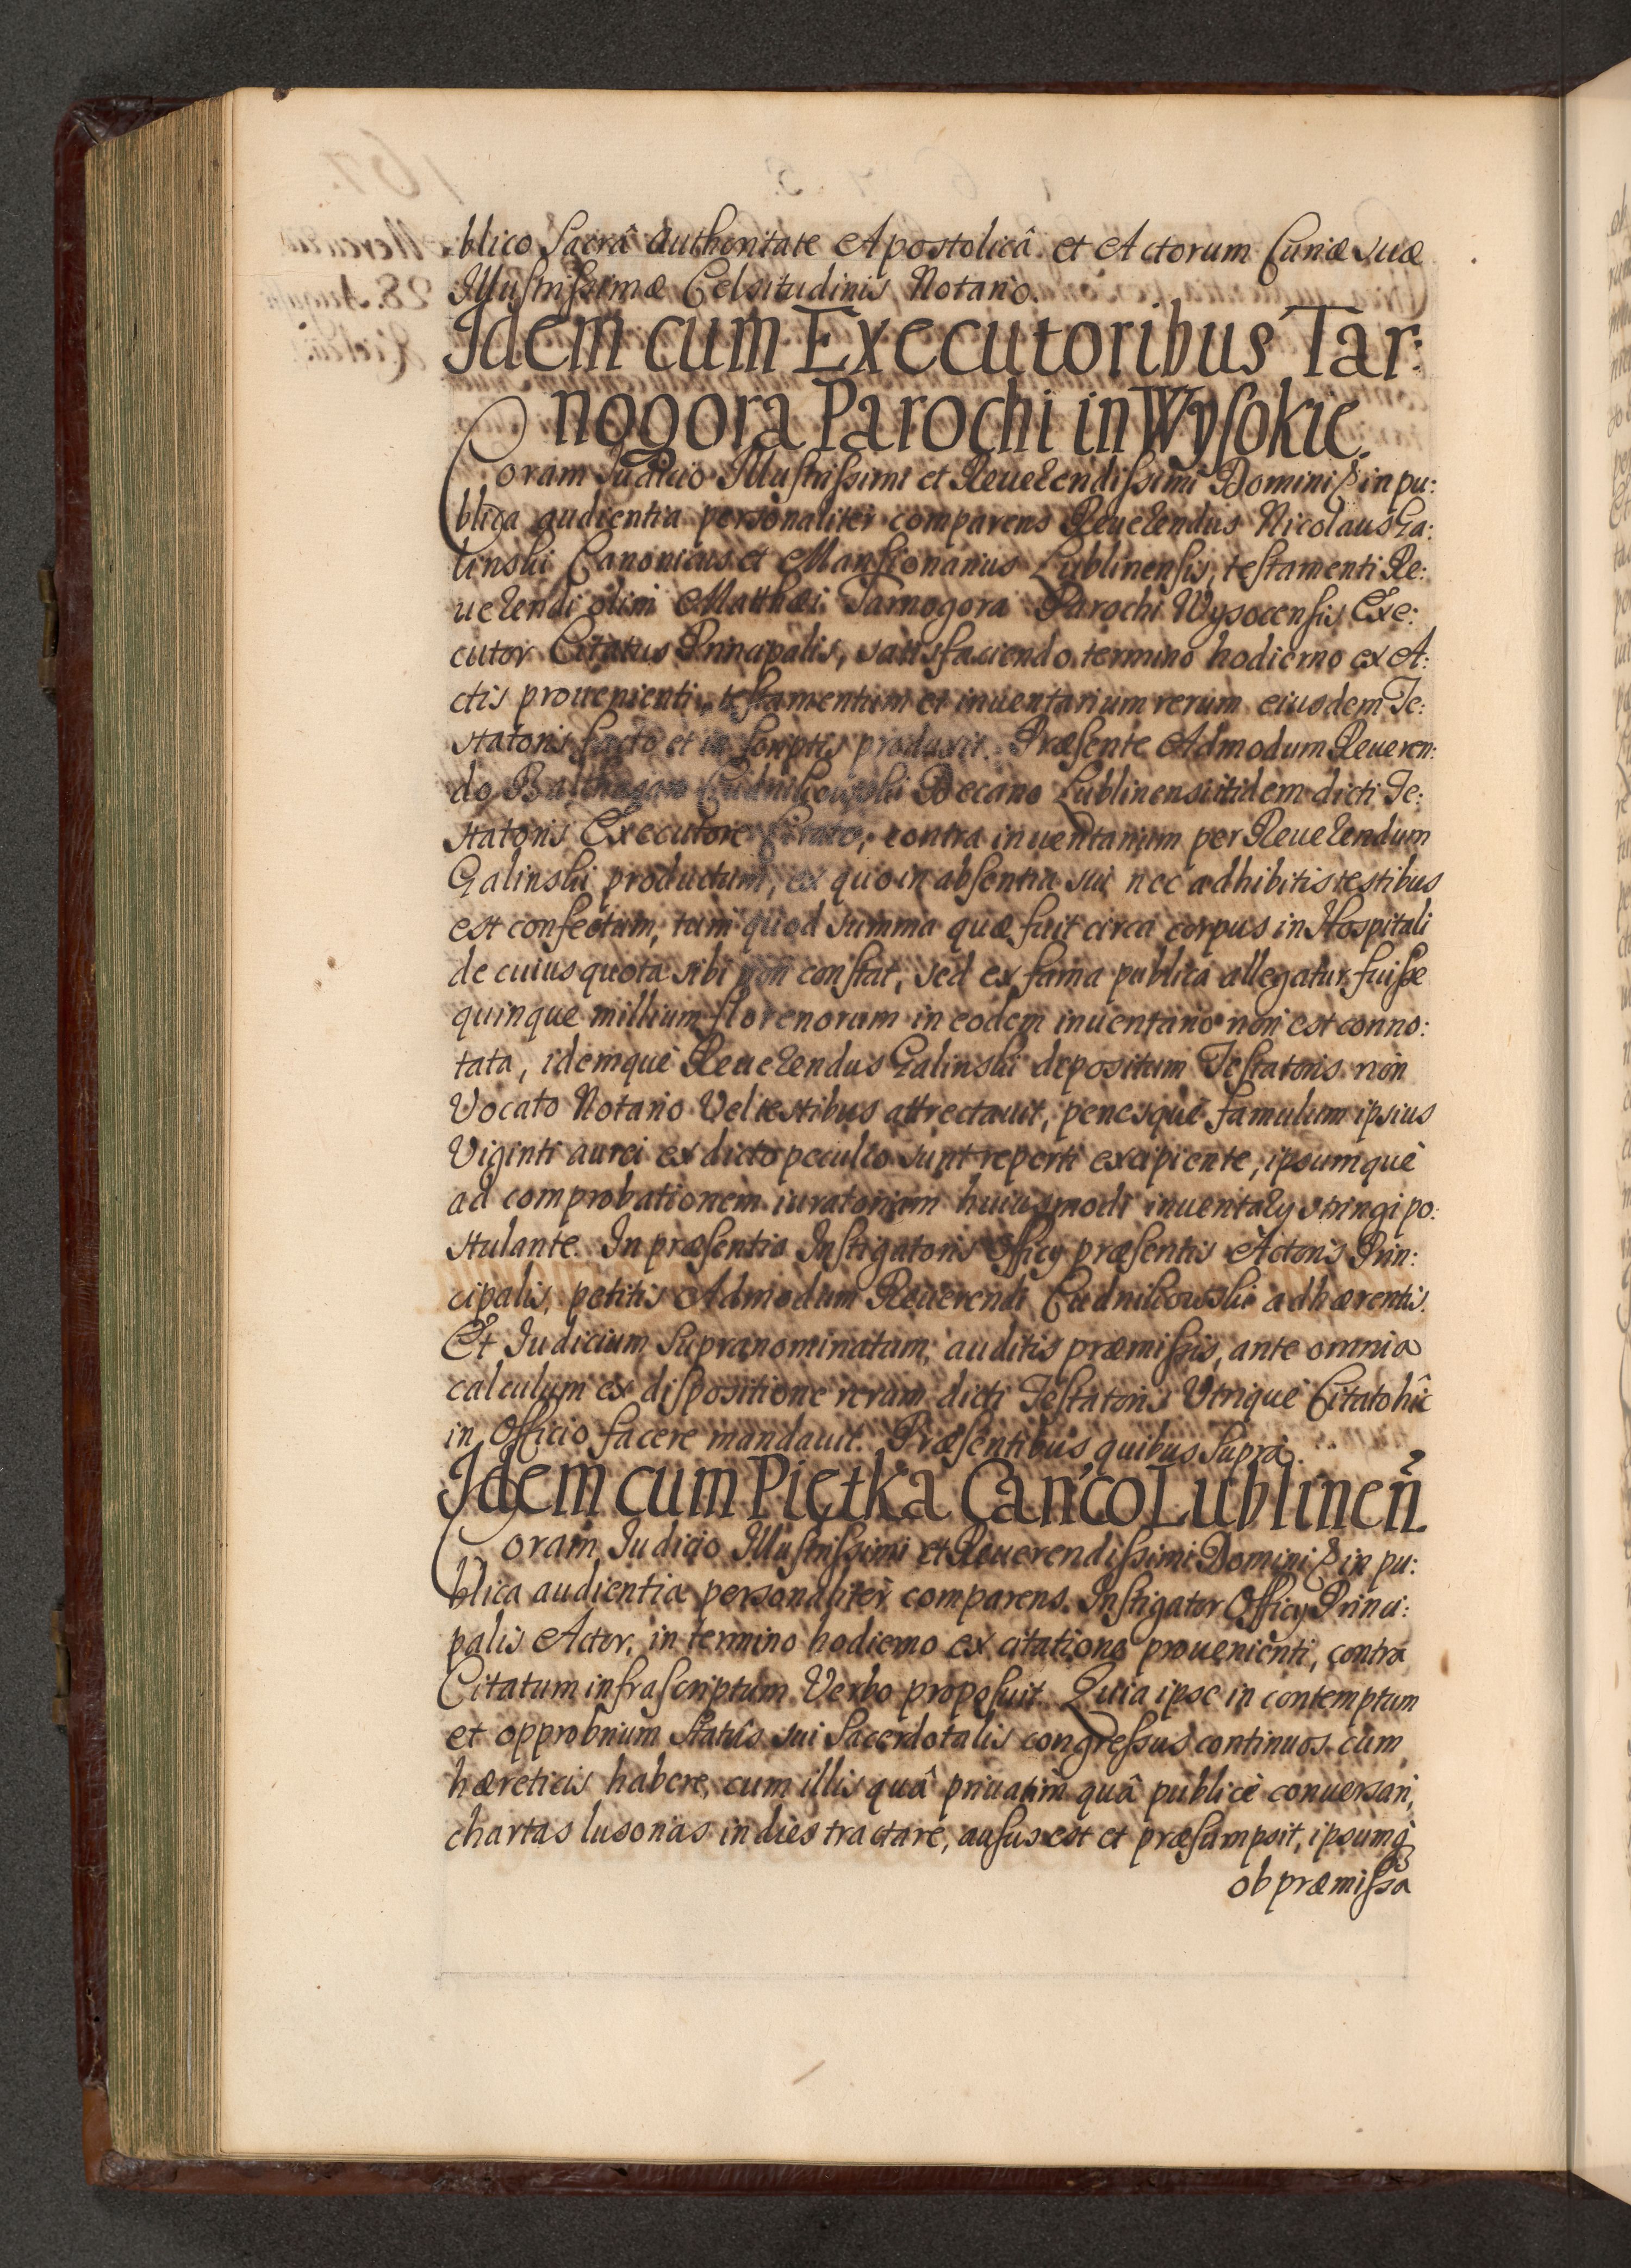 blico Sacrâ Authoritate Apostolicâ et Actorum Curiæ suæ
Illustrissimæ Celsitudinis Notario.
Idem cum Executoribus Tar:
nogora Parochi in Wysokie.
Coram Iudicio Illustrissimi et Reuerendissimi Domini & in pu:
blica audientia personaliter comparens Reuerendus Nicolaus Ga:
linski Canonicus et Mansionarius Lublinensis, testamenti Re:
uerendi olim Matthæi Tarnogora Parochi Wysocensis Exe:
cutor Citatus Principalis, satisfaciendo termino hodierno ex A:
ctis prouenienti, testamentum et inuentarium rerum eiusdem Te:
statoris facto et in scriptis produxit. Præsente Admodum Reueren:
do Balthazaro Cudnikowski Decano Lublinensi itidem dicti Te:
statoris Executore Citato, contra inuentarium per Reuerendum
Galinski productum, ex quo in absentia sui nec adhibitis testibus
est confectum, tum quod summa quæ fuit circa corpus in Hospitali
de cuius quota sibi non constat, sed ex fama publica allegatur fuisse
quinque millium florenorum in eodem inuentario non est conno:
tata, idemquè Reuerendus Galinski depositum Testatoris non
Vocato Notario Vel testibus attrectauit, penesquè famulum ipsius
Viginti aurei ex dicto peculio sunt reperti excipiente, ipsumquè
ad comprobationem iuratoriam huiusmodi inuentarij stringi po:
stulante. In præsentia Instigatoris Officij præsentis Actoris Prin:
cipalis, petitis Admodum Reuerendi Cudnikowski adhærentis.
Et Iudicium Supranominatum, auditis præmissis, ante omnia
calculum ex dispositione rerum dicti Testatoris Utrique Citato hîc
in Officio facere mandauit. Præsentibus quibus Supra.
Idem cum Piętka Can'co Lublinen.
Coram Iudicio Illustrissimi et Reuerendissimi Domini & in pu:
blica audientia personaliter comparens Instigator Officij Princi:
palis Actor, in termino hodierno ex citatione prouenienti, contra
Citatum infrascriptum Verbo proposuit. Quia ipse in contemptum
et opprobrium Statûs sui Sacerdotalis congressus continuos cum
hæreticis habere, cum illis quâ priuatim quâ publicè conuersari,
chartas lusorias in dies tractare, ausus est et præsumpsit, ipsumq
ob præmissa